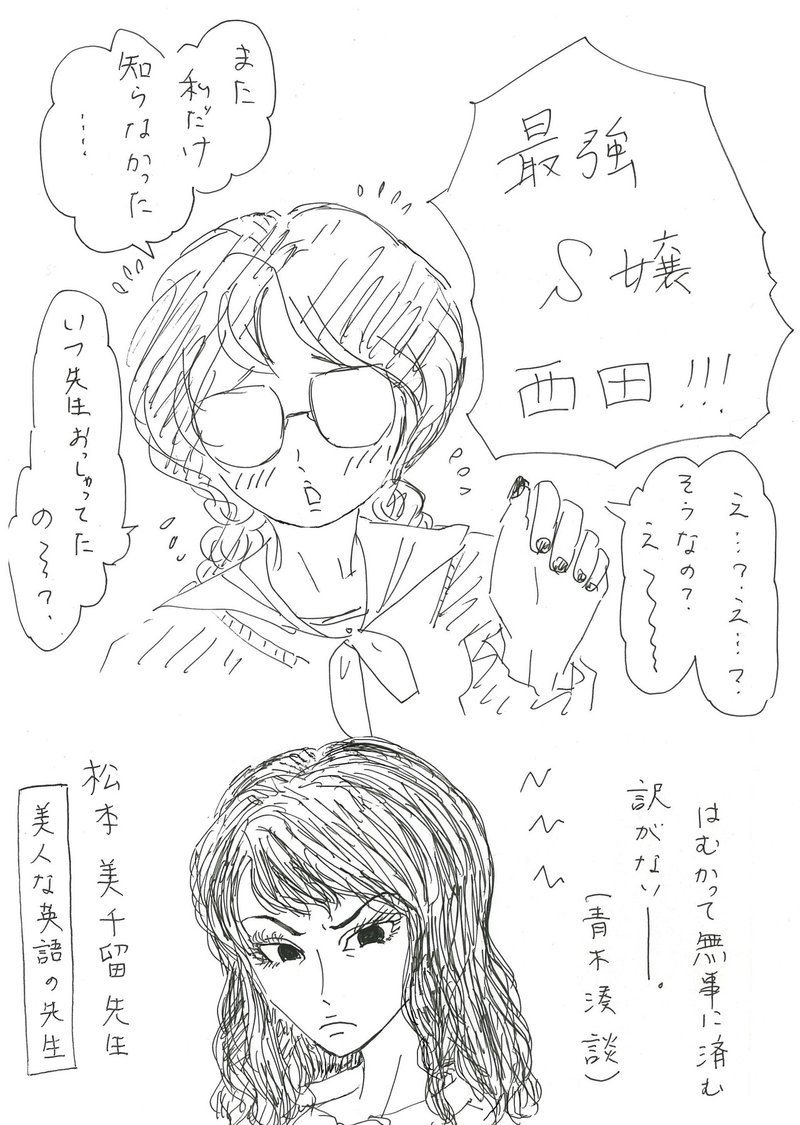 最強
S嬢
西田!!!
また
私だけ
知らなかった
……
え…?え…?
そうなの?
え〜〜〜
いつ先生おっしゃってた
の〜〜?
はむかって無事に済む
訳がない——。
(青木湊談)
松本美千留先生
美人な英語の先生